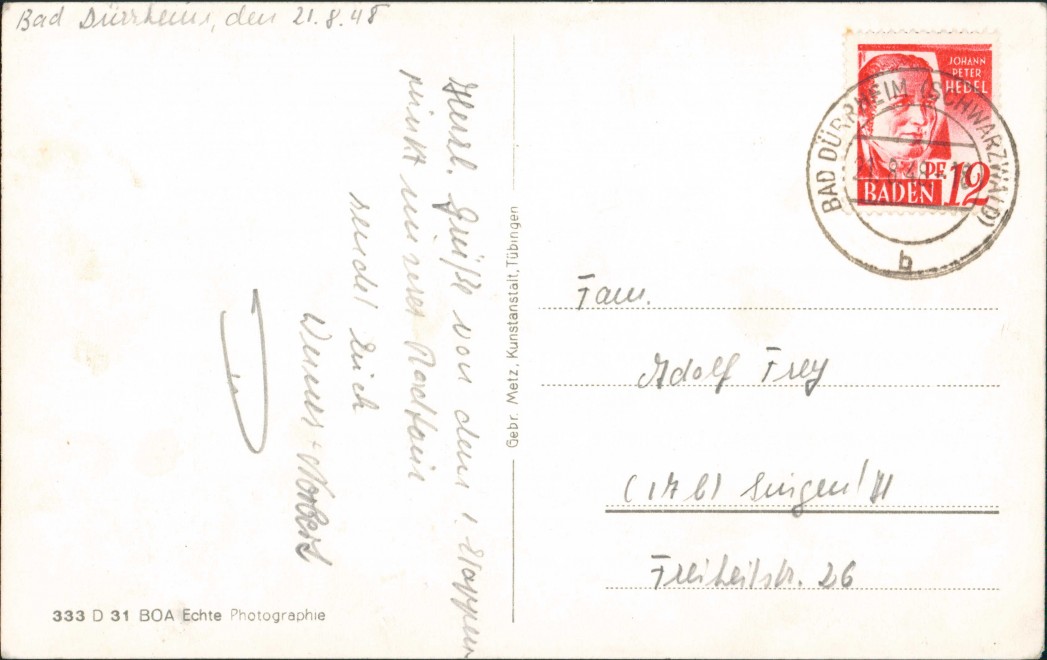 Bad Dürrheim, den 21.8.48
Herzl. Grüße von dem 1. Etappen
punkt unserer Radtour
sendet Euch
Werner + Norbert
Gebr. Metz, Kunstanstalt, Tübingen
JOHANN
PETER
HEBEL
PF. 12
BADEN
BAD DÜRRHEIM (SCHWARZWALD)
21.8.48
b
Fam.
Adolf Frey
(17b) Singen/H
Freiheitstr. 26
333 D 31 BOA Echte Photographie